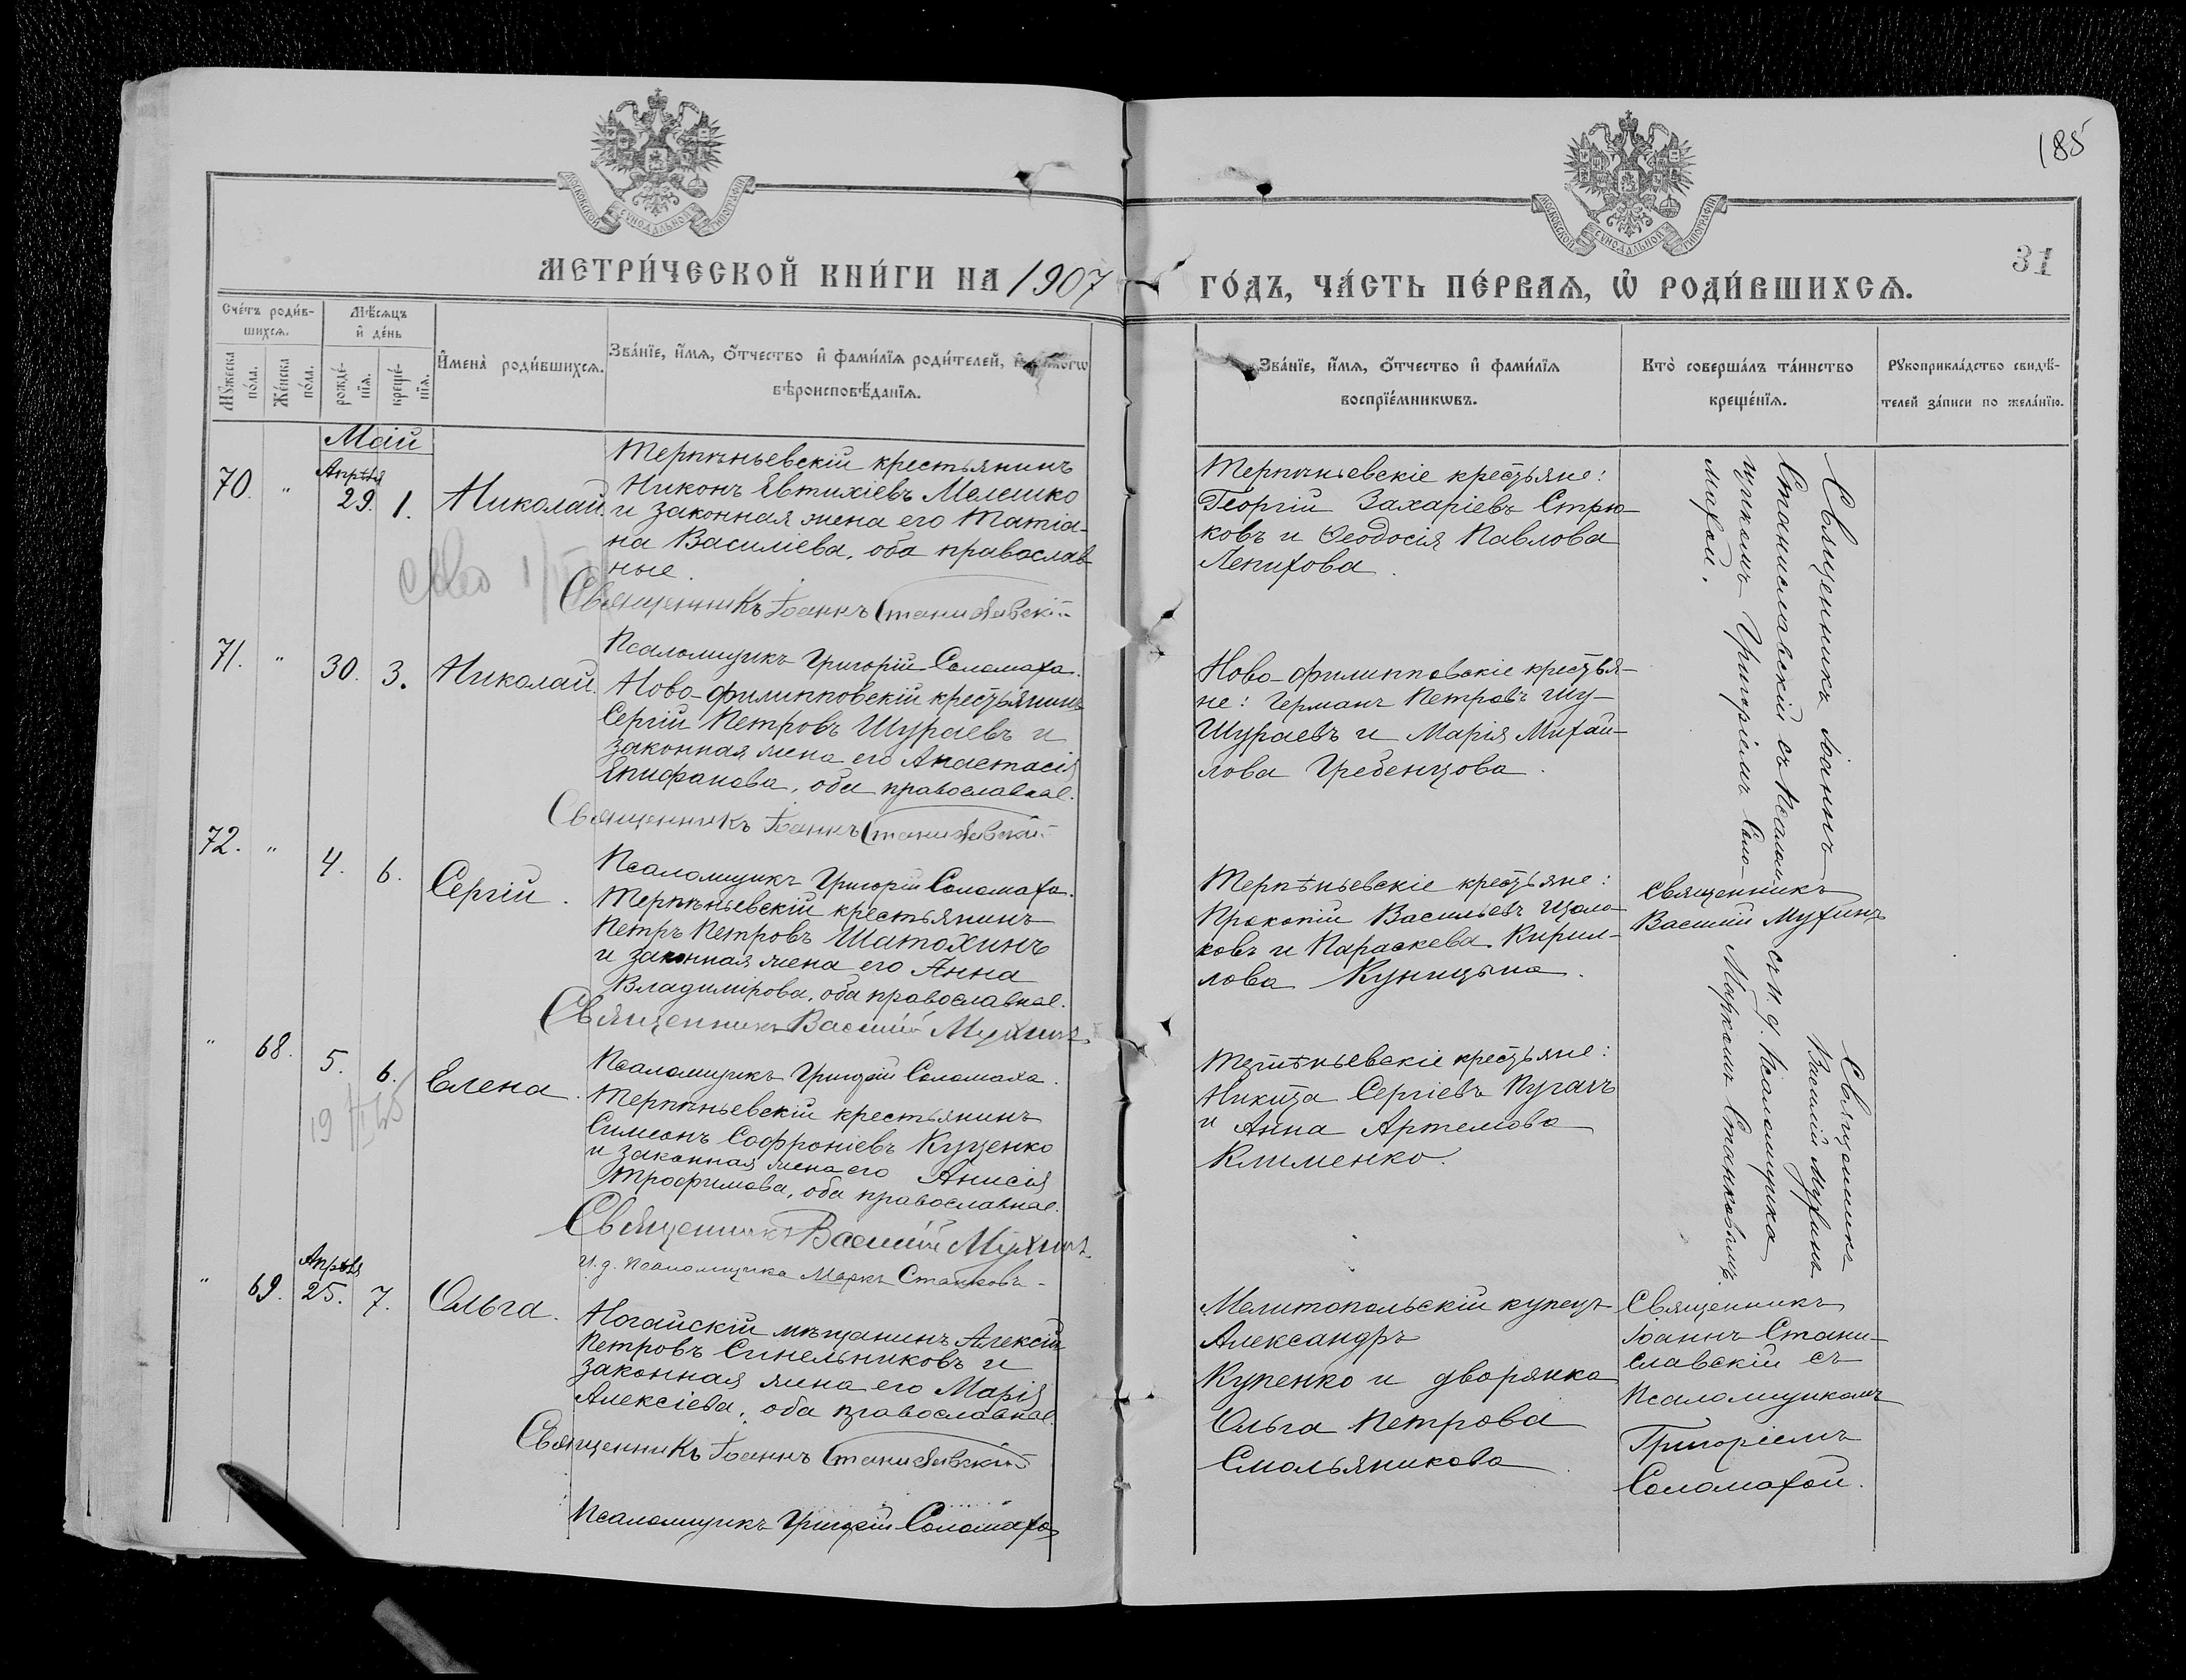 185
31
МОСКОВСКОЙ СѴНОДАЛЬНОЙ ТИПОГРАФІИ
МОСКОВСКОЙ СѴНОДАЛЬНОЙ ТИПОГРАФІИ
МЕТРИ́ЧЕСКОЙ КНИ́ГИ НА 1907
ГО́ДЪ, ЧА́СТЬ ПЕ́РВАѦ, Ѡ҆ РОДИ́ВШИХСѦ.
Сче́тъ роди́в-
шихсѧ.
Мꙋ́жеска по́ла.
Же́нска по́ла.
Мѣ́сѧцъ
и҆ де́нь
рожде́-
нїѧ.
креще́-
нїѧ.
И҆мена̀ роди́вшихсѧ.
Зва́нїе, и҆́мѧ, ѻ҆́тчество и҆ фами́лїѧ роди́телей,
вѣроисповѣ́данїѧ.
Зва́нїе, и҆́мѧ, ѻ҆́тчество и҆ фами́лїѧ
воспрїе́мникѡвъ.
Кто̀ соверша́лъ та́инство
креще́нїѧ.
Рꙋкоприкла́дство свидѣ́-
телей за́писи по жела́нїю.
Май
70. " Апрѣля 29. 1. Николай.
Терпѣньевскій крестьянинъ
Никонъ Евтихіевъ Мелешко
и законная жена его Татіа-
на Василіева, оба православ
ные.
Священникъ Іоаннъ Станиславскій
Псаломщикъ Григорій Соломаха.
Терпѣньевскіе крестьяне:
Георгій Захаріевъ Стрю-
ковъ и Ѳеодосія Павлова
Лепихова.
Священникъ Іоаннъ
Станиславскій съ псалом-
щикомъ Григоріемъ Соло-
махой.
71. " 30. 3. Николай.
Ново-филипповскій крестьянинъ
Сергій Петровъ Шураевъ и
законная жена его Анастасія
Епифанова, оба православные.
Священникъ Іоаннъ Станиславскій
Псаломщикъ Григорій Соломаха.
Ново-филипповскіе крестья-
не: Германъ Петровъ Шу-
Шураевъ и Марія Михай-
лова Гребенцова.
72. " 4. 6. Сергій.
Терпѣньевскій крестьянинъ
Петръ Петровъ Шатохинъ
и законная жена его Анна
Владимирова, оба православные.
Священникъ Василій Мухинъ
Псаломщикъ Григорій Соломаха.
Терпѣньевскіе крестьяне:
Прокопій Васильевъ
и Параскева Кирил-
лова Куницына.
Священникъ
Василій Мухинъ
съ и. д. псаломщика
Маркомъ Станковымъ.
" 68. 5. 6. Елена.
Терпѣньевскій крестьянинъ
Симеонъ Софроніевъ Куценко
и законная жена его Анисія
Трофимова, оба православные.
Священникъ Василій Мухинъ
И. д. псаломщика Маркъ Станковъ
Терпѣньевскіе крестьяне:
Никита Сергіевъ Пугачъ
и Анна Артемова
Клименко.
Священникъ
Василій Мухинъ
" 69. Апрѣля 25. 7. Ольга.
Ногайскій мѣщанинъ Алексій
Петровъ Синельниковъ и
законная жена его Марія
Алексіева, оба православные.
Священникъ Іоаннъ Станиславскій
Псаломщикъ Григорій Соломаха
Мелитопольскій купецъ
Александръ
Купенко и дворянка
Ольга Петрова
Смольяникова
Священникъ
Іоаннъ Стани-
славскій съ
псаломщикомъ
Григоріемъ
Соломахой.